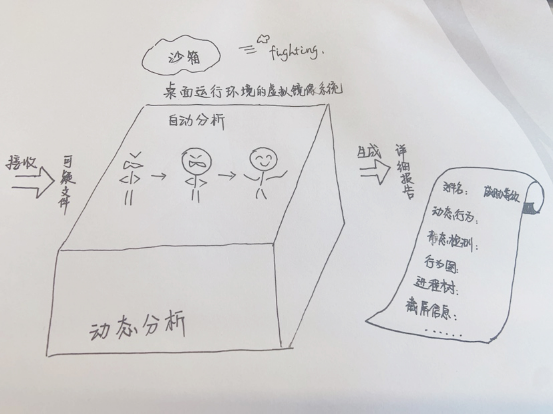 沙箱
fighting.
桌面运行环境的虚拟镜像系统
自动分析
接收
可疑文件
生成
详细报告
动态分析
动态行为:
静态检测:
行为图:
进程树:
截屏信息:
......